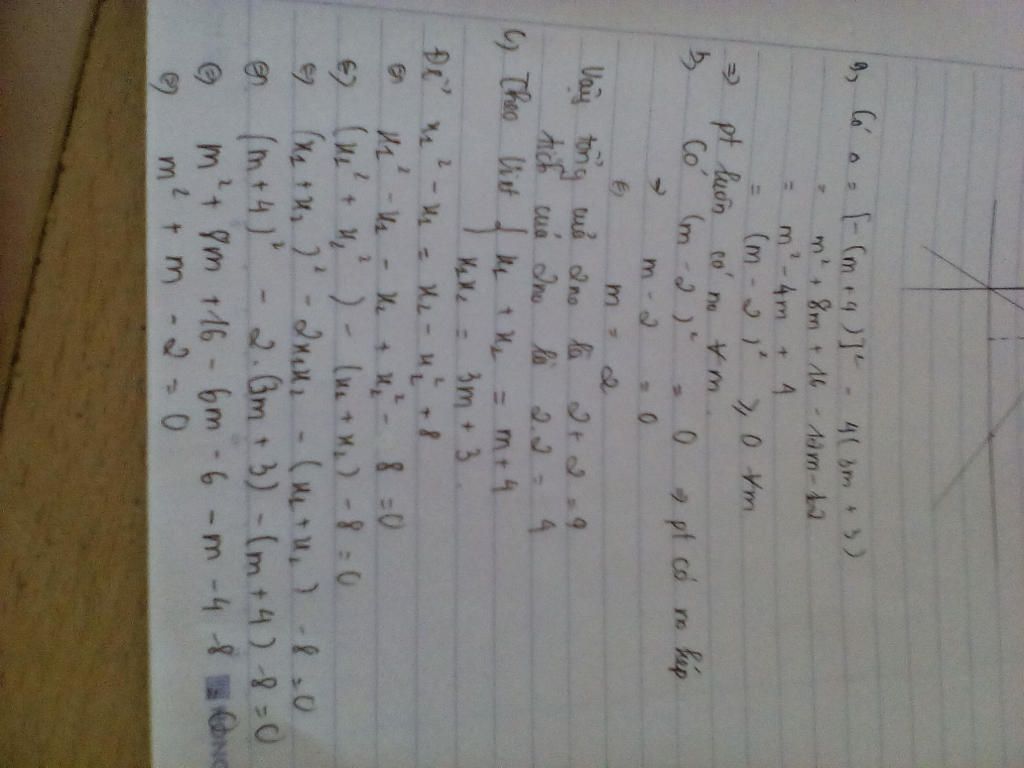 a, Có Δ = [-(m+4)]² - 4(3m+3)
= m² + 8m + 16 - 12m - 12
= m² - 4m + 4
= (m - 2)² ≥ 0 ∀m
=> pt luôn có no ∀m.
b, Có (m - 2)² = 0 => pt có no kép
=> m - 2 = 0
⇔ m = 2
Vậy tổng của 2no là 2+2=4
tích của 2no là 2.2 = 4
c, Theo Viet { x₁ + x₂ = m+4
x₁x₂ = 3m+3.
Để x₁² - x₁ = x₂ - x₂² + 8
⇔ x₁² - x₁ - x₂ + x₂² - 8 = 0
⇔ (x₁² + x₂²) - (x₁+x₂) - 8 = 0
⇔ (x₁+x₂)² - 2x₁x₂ - (x₁+x₂) - 8 = 0
⇔ (m+4)² - 2.(3m+3) - (m+4) - 8 = 0
⇔ m² + 8m + 16 - 6m - 6 - m - 4 - 8 = 0
⇔ m² + m - 2 = 0